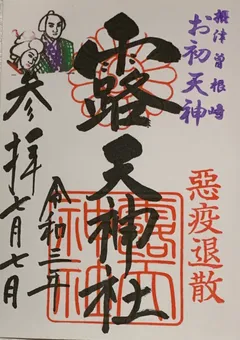 摂津曽根崎
お初天神
惡疫退散
露天神社
令和二年
参拝七月七日
露天
神社